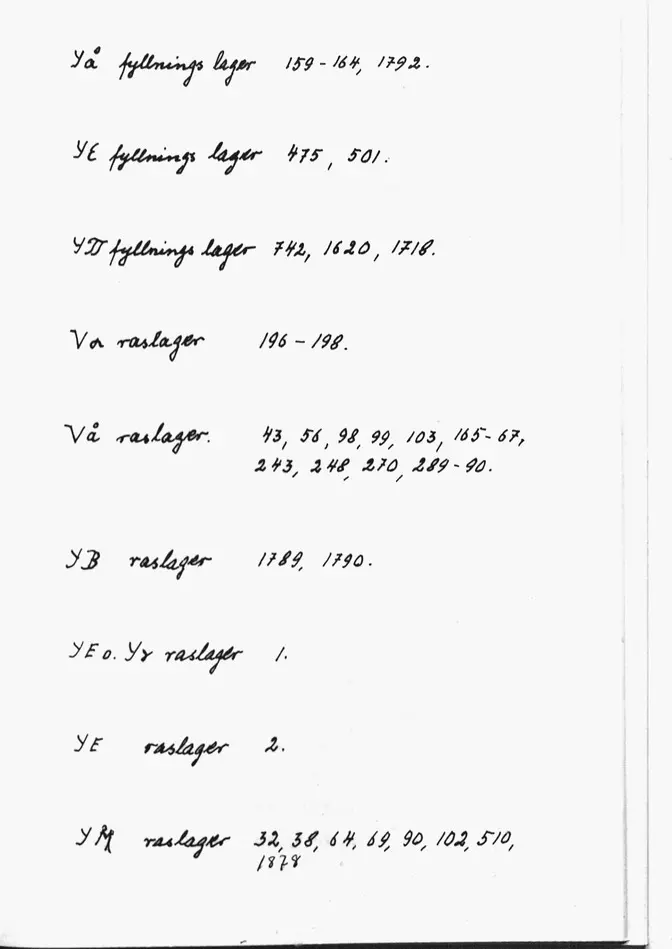 Yå fyllnings lager 159-164, 1792.
YE fyllnings lager 475, 501.
YD fyllnings lager 742, 1620, 1718.
Vα raslager 196-198.
Vå raslager. 43, 56, 98, 99, 103, 165-67,
243, 248, 270, 289-90.
YB raslager 1789, 1790.
YE o. Yγ raslager 1.
YE raslager 2.
raslager 32, 38, 64, 69, 90, 102, 510,
1878